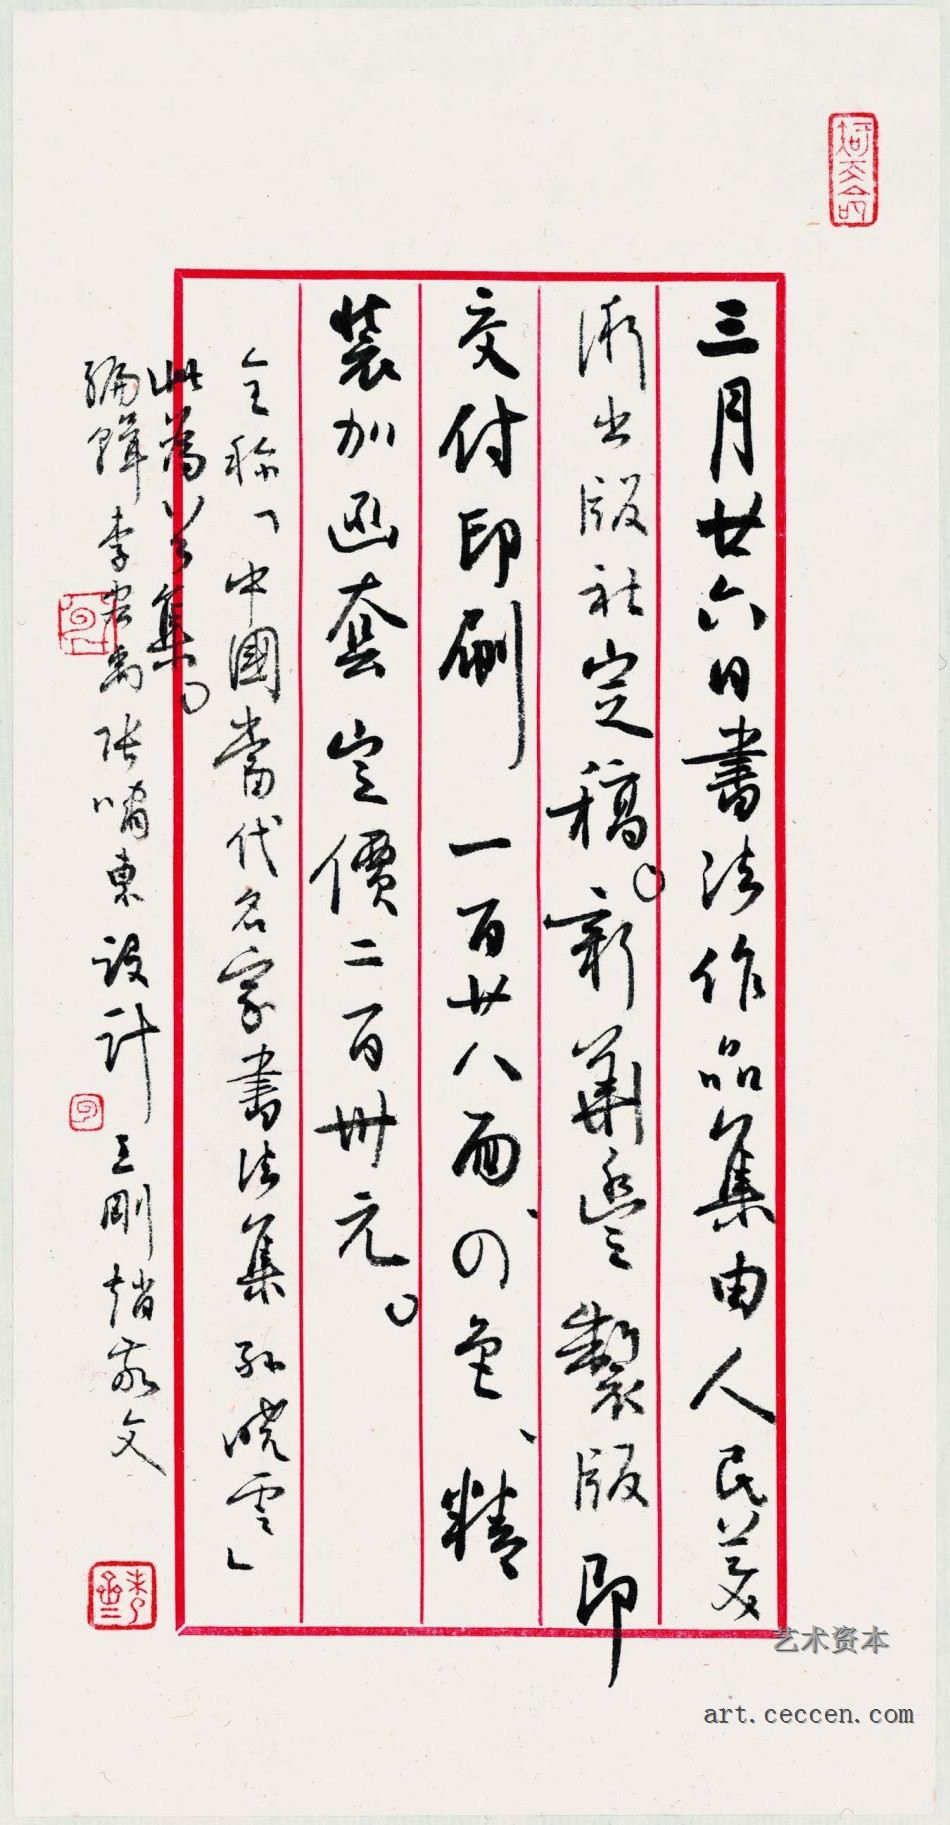 三月廿六日書法作品集由人民美
術出版社定稿。新華豐製版即
交付印刷一百廿八面、四色、精
裝加函套定價二百卅元。
全称「中國當代名家書法集孙晓雲」
此為首集。
編輯李宏禹张啸東設計王剛趙家文
艺术资本
art.ceccen.com